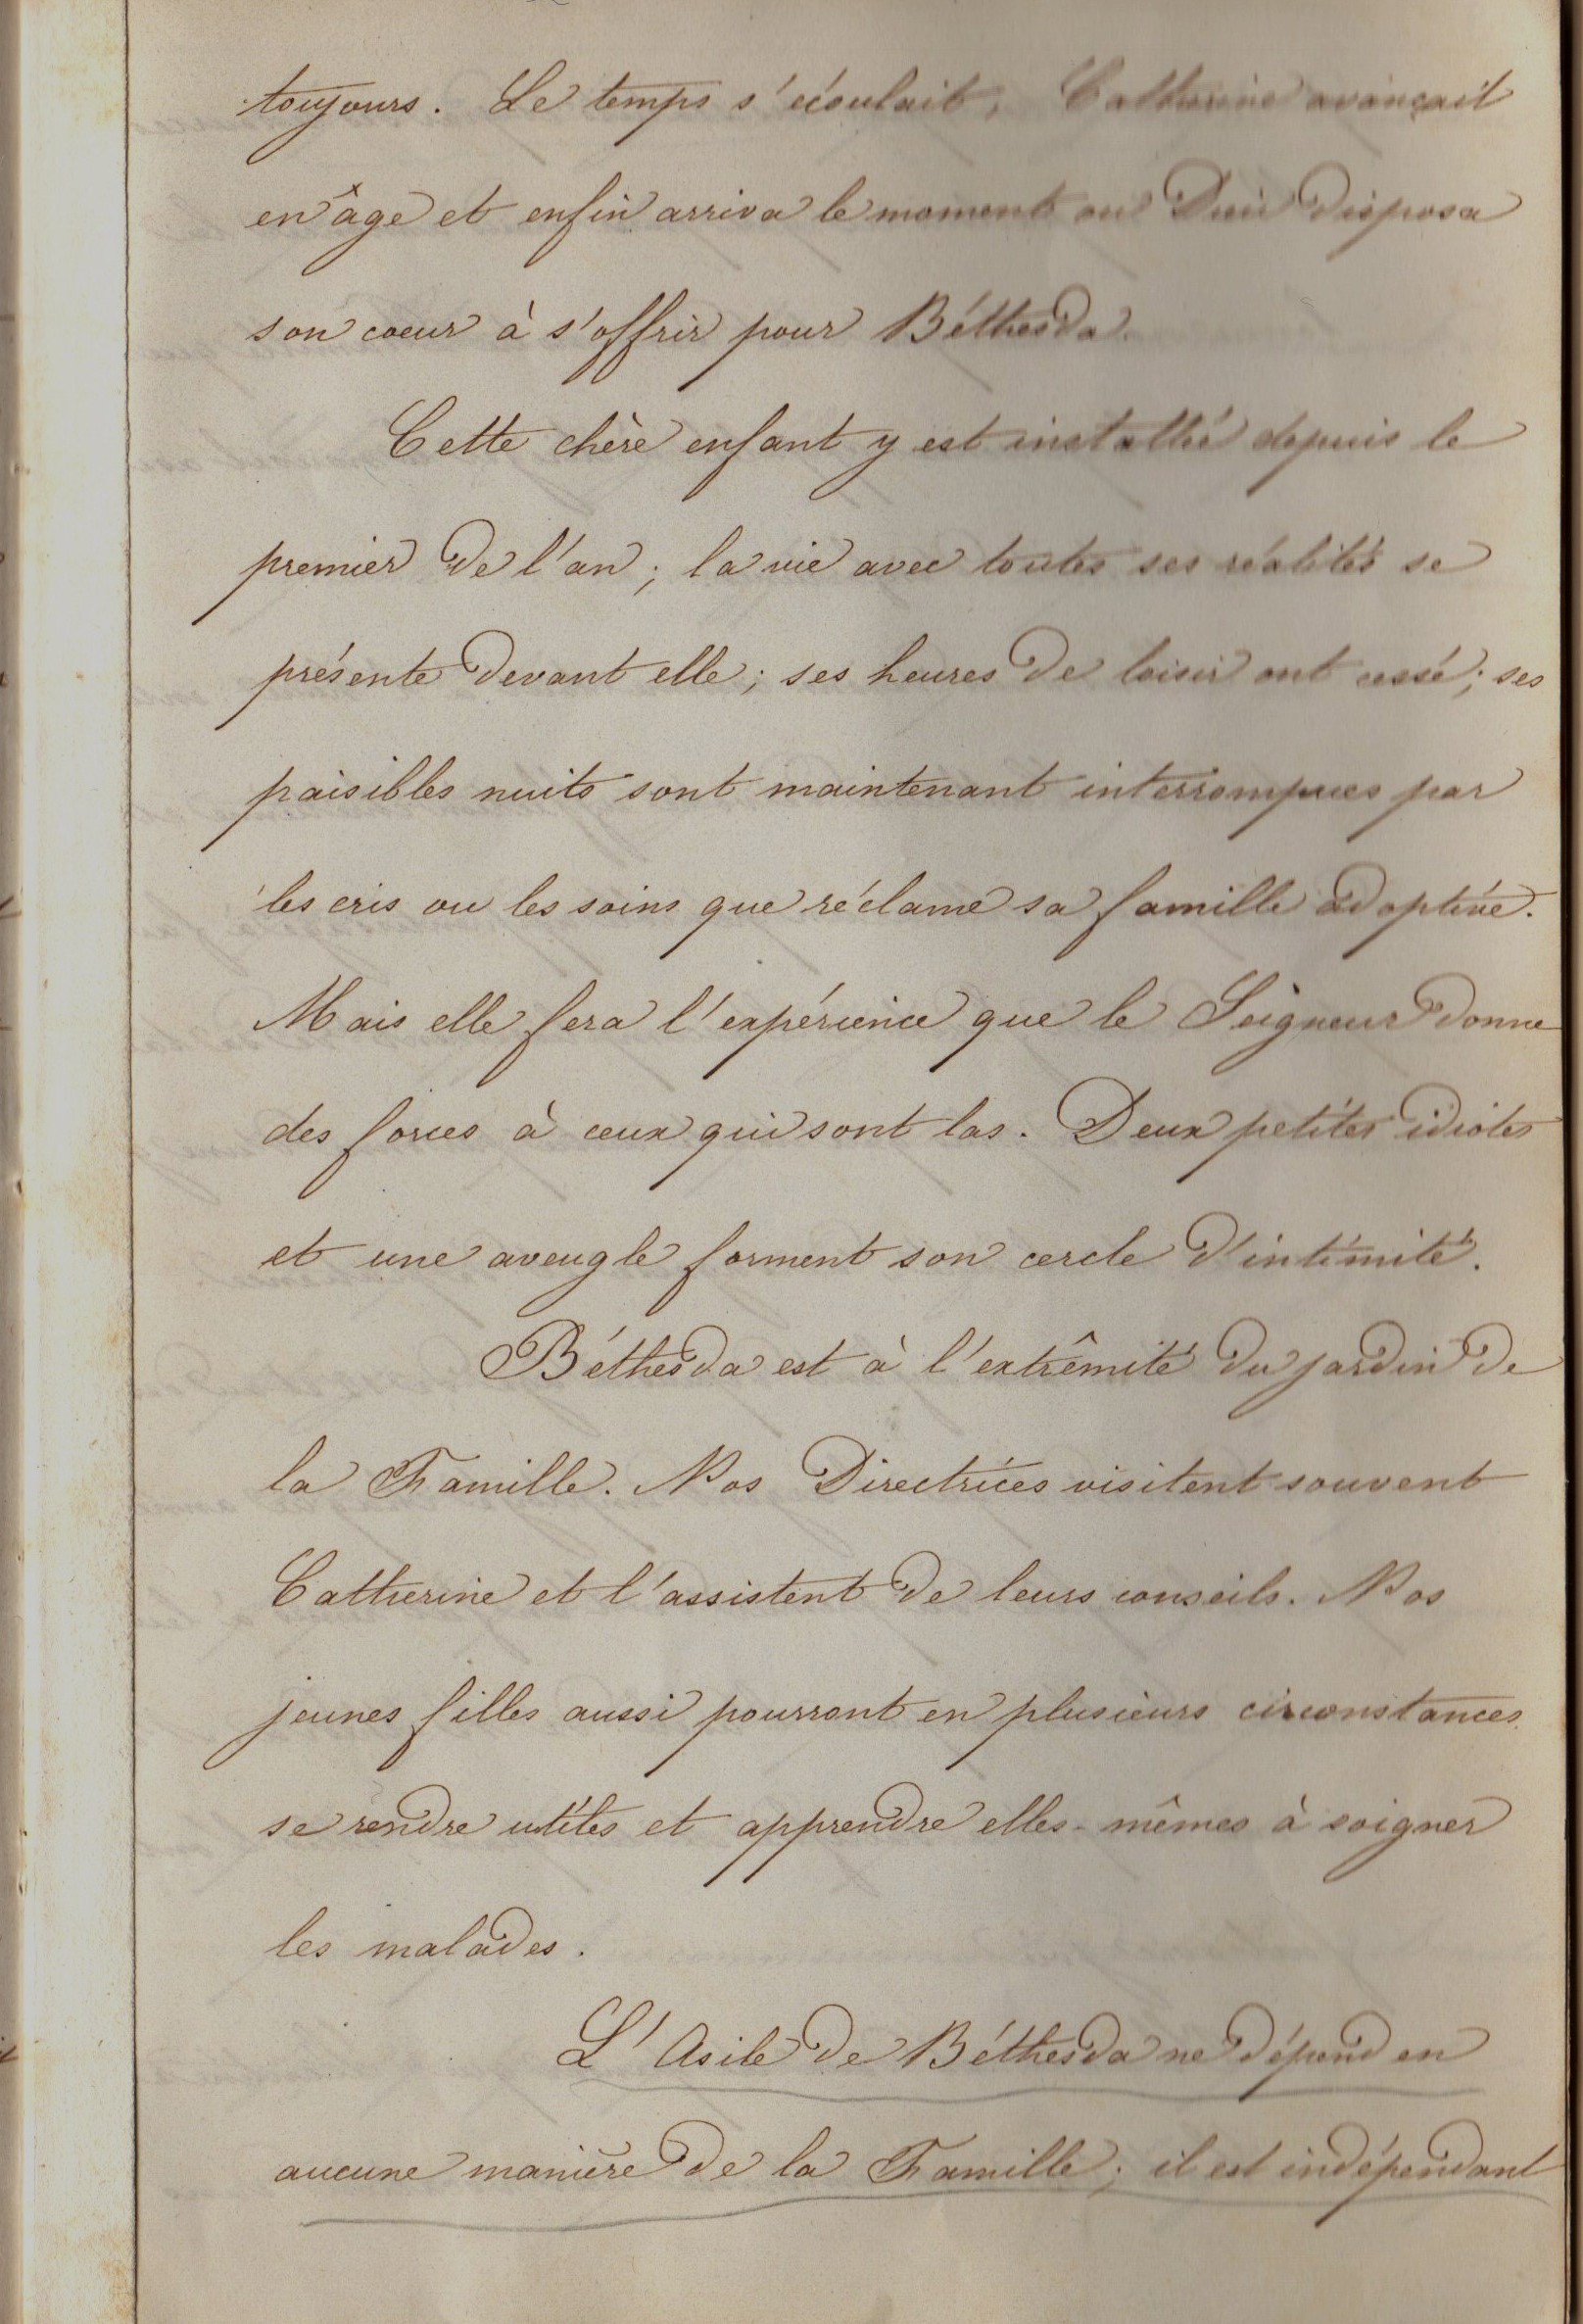 toujours. Le temps s'écoulait, Catherine avançait
en âge et enfin arriva le moment où Dieu disposa
son coeur à s'offrir pour Béthesda.
Cette chère enfant y est installée depuis le
premier de l'an; la vie avec toutes ses réalités se
présente devant elle; ses heures de loisir ont cessé; ses
paisibles nuits sont maintenant interrompues par
les cris ou les soins que réclame sa famille adoptive.
Mais elle fera l'expérience que le Seigneur donne
des forces à ceux qui sont las. Deux petites idiotes
et une aveugle forment son cercle d'intimité.
Béthesda est à l'extrêmité du jardin de
la Famille. Nos Directrices visitent souvent
Catherine et l'assistent de leurs conseils. Nos
jeunes filles aussi pourront en plusieurs circonstances
se rendre utiles et apprendre elles-mêmes à soigner
les malades.
L'Asile de Béthesda ne dépend en
aucune manière de la Famille; il est indépendant